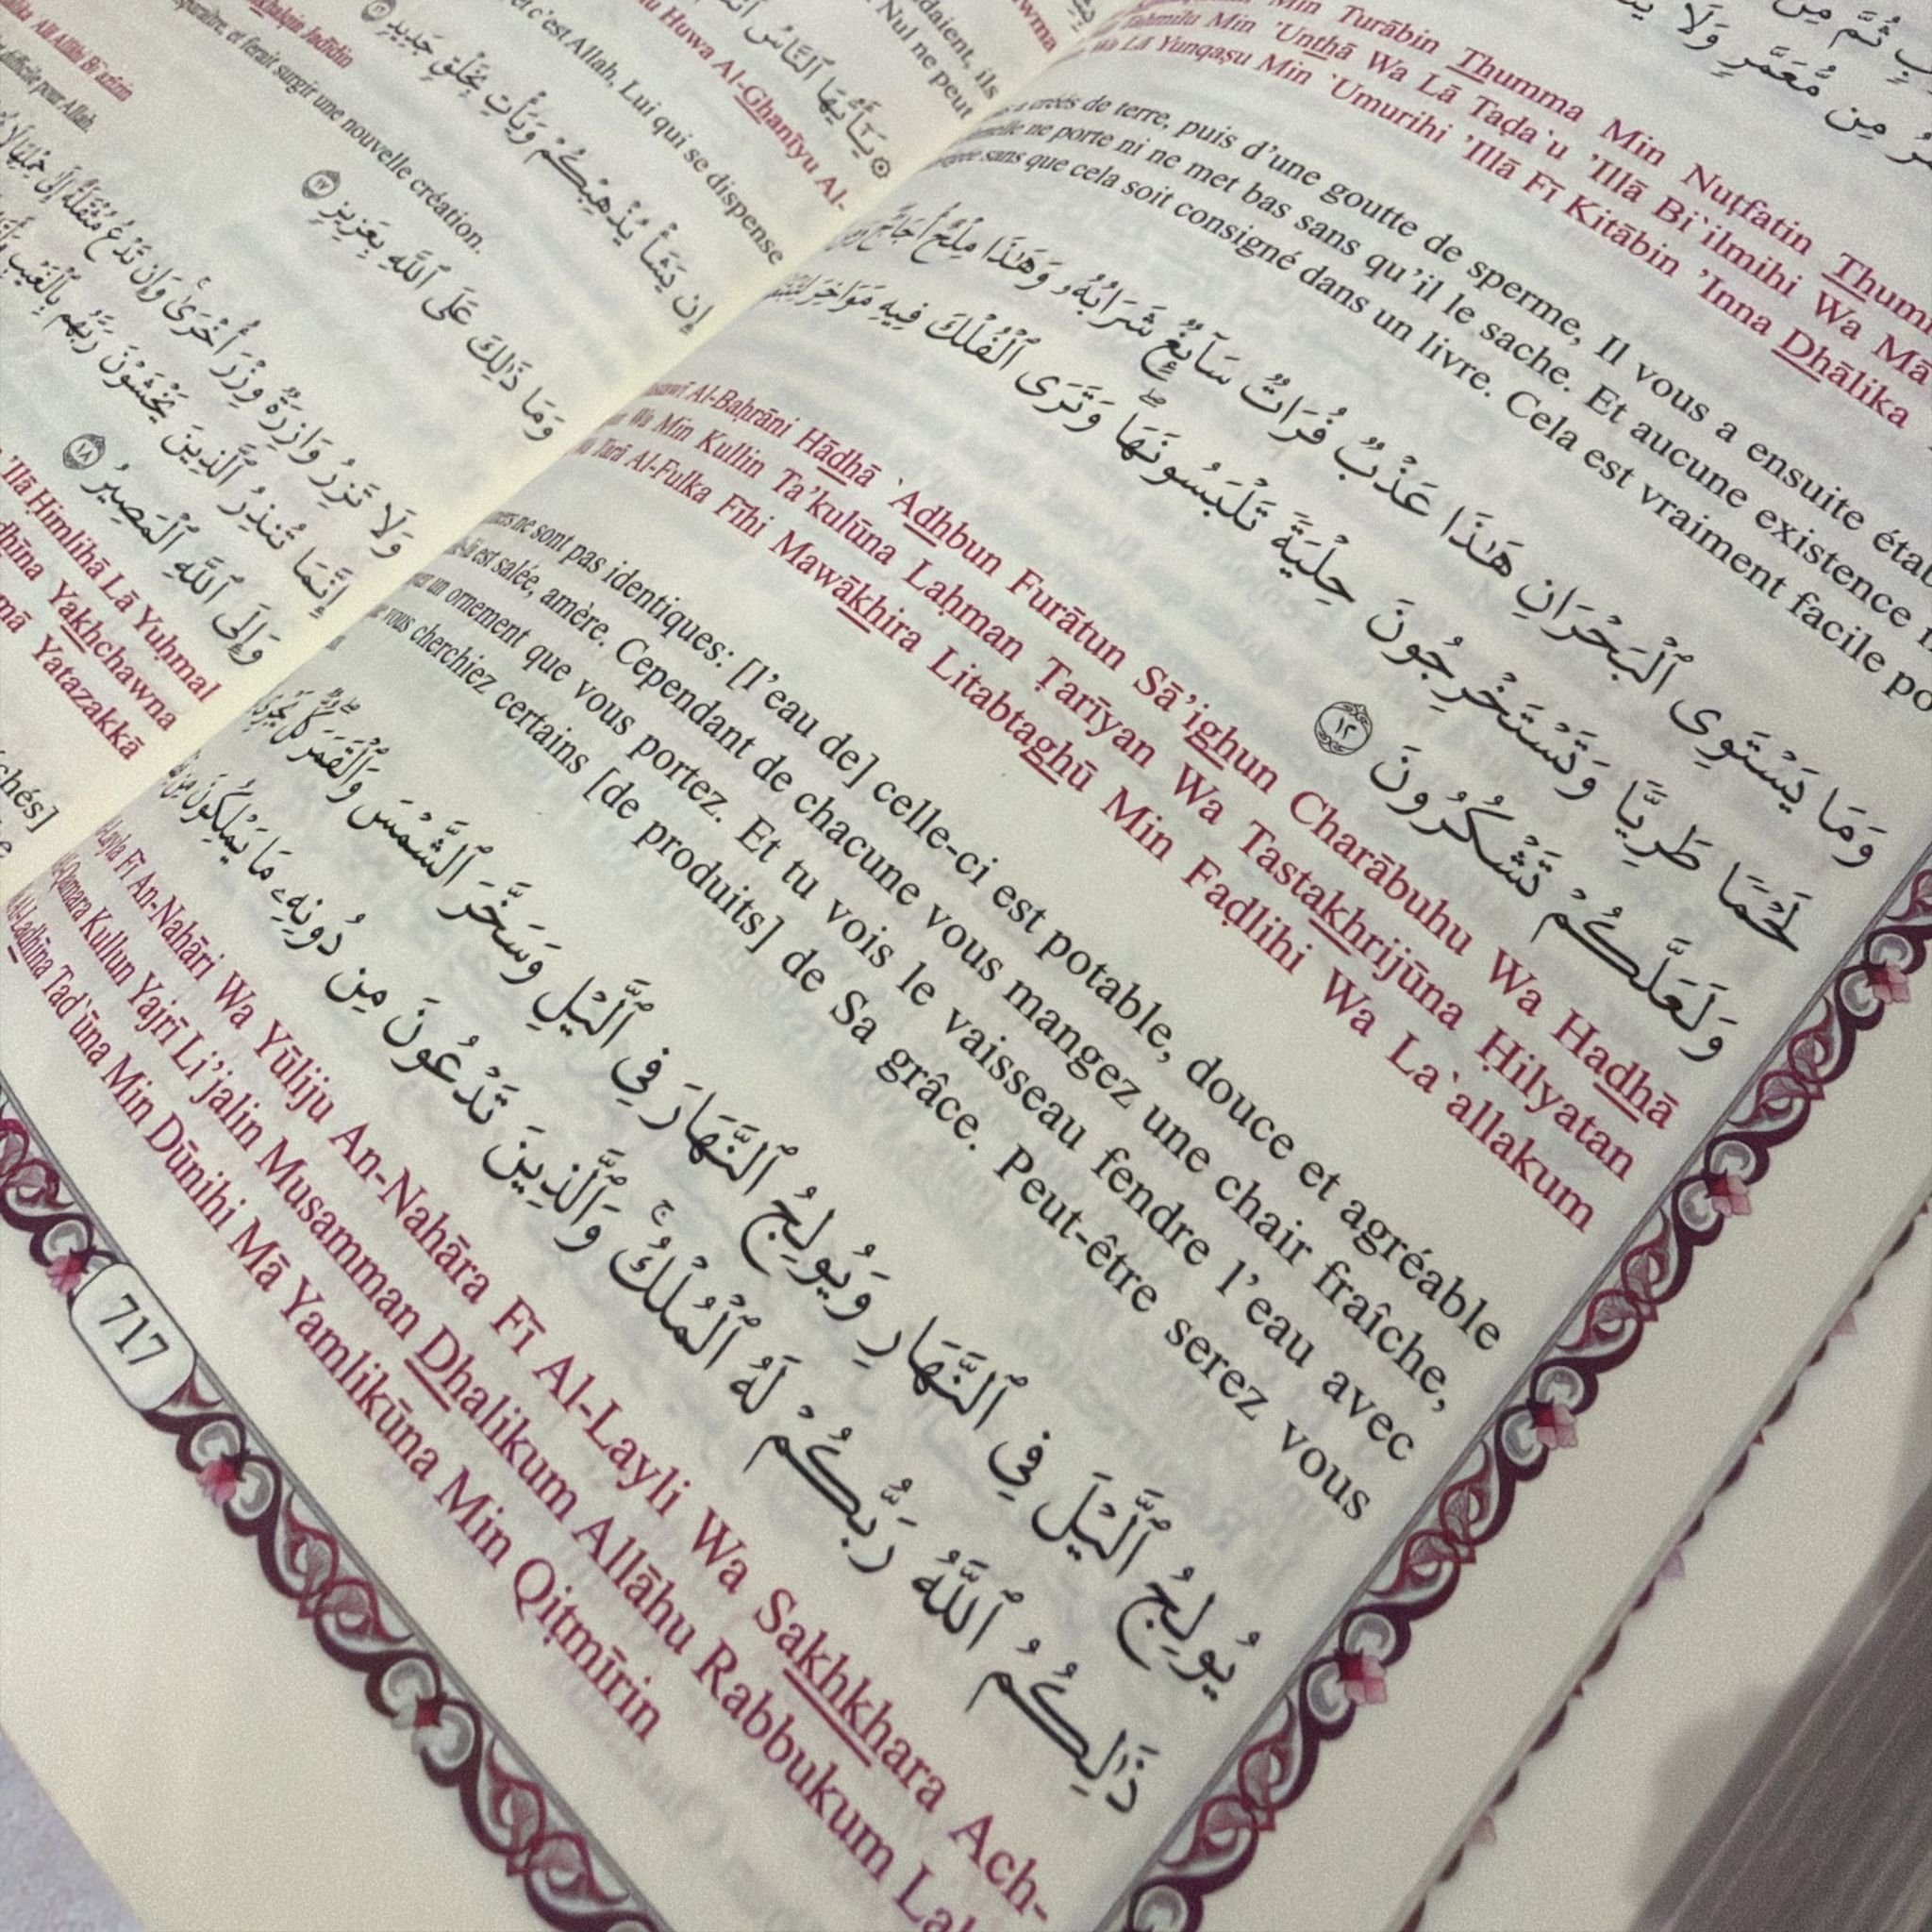 Min Turābin Thumma Min Nuṭfatin
Min 'Unthā Wa Lā Taḍa`u 'Illā Bi`ilmihi Wa Mā
Wa Lā Yunqaṣu Min `Umurihi 'Illā Fī Kitābin 'Inna Dhālika
créés de terre, puis d'une goutte de sperme, Il vous a ensuite
ne porte ni ne met bas sans qu'il le sache. Et aucune existence
sans que cela soit consigné dans un livre. Cela est vraiment facile
وَمَا يَسْتَوِى ٱلْبَحْرَانِ هَٰذَا عَذْبٌ فُرَاتٌ سَآئِغٌ شَرَابُهُۥ وَهَٰذَا مِلْحٌ أُجَاجٌ
لَحْمًا طَرِيًّا وَتَسْتَخْرِجُونَ حِلْيَةً تَلْبَسُونَهَا ۖ وَتَرَى ٱلْفُلْكَ فِيهِ مَوَاخِرَ
وَلَعَلَّكُمْ تَشْكُرُونَ ١٢
Al-Baḥrāni Hādhā `Adhbun Furātun Sā'ighun Charābuhu Wa Hadhā
Wa Min Kullin Ta'kulūna Laḥman Ṭarīyan Wa Tastakhrijūna Ḥilyatan
Tará Al-Fulka Fīhi Mawākhira Litabtaghū Min Faḍlihi Wa La`allakum
ne sont pas identiques: [l'eau de] celle-ci est potable, douce et agréable
est salée, amère. Cependant de chacune vous mangez une chair fraîche,
un ornement que vous portez. Et tu vois le vaisseau fendre l'eau avec
vous cherchiez certains [de produits] de Sa grâce. Peut-être serez vous
يُولِجُ ٱلَّيْلَ فِى ٱلنَّهَارِ وَيُولِجُ ٱلنَّهَارَ فِى ٱلَّيْلِ وَسَخَّرَ ٱلشَّمْسَ وَٱلْقَمَرَ كُلٌّ
ذَٰلِكُمُ ٱللَّهُ رَبُّكُمْ لَهُ ٱلْمُلْكُ ۚ وَٱلَّذِينَ تَدْعُونَ مِن دُونِهِۦ مَا يَمْلِكُونَ مِن
Fī An-Nahāri Wa Yūliju An-Nahāra Fī Al-Layli Wa Sakhkhara Ach-
Kullun Yajrī Li'jalin Musamman Dhalikum Allāhu Rabbukum
Al-Ladhīna Tad`ūna Min Dūnihi Mā Yamlikūna Min Qiṭmīrin
717
Huwa Al-Ghanīyu Al-
c'est Allah, Lui qui se dispense
إِن يَشَأْ يُذْهِبْكُمْ وَيَأْتِ بِخَلْقٍ جَدِيدٍ
et ferait surgir une nouvelle création.
وَمَا ذَٰلِكَ عَلَى ٱللَّهِ بِعَزِيزٍ ١٧
difficile pour Allah.
وَلَا تَزِرُ وَازِرَةٌ وِزْرَ أُخْرَىٰ وَإِن تَدْعُ مُثْقَلَةٌ إِلَىٰ حِمْلِهَا لَا
إِنَّمَا تُنذِرُ ٱلَّذِينَ يَخْشَوْنَ رَبَّهُم بِٱلْغَيْبِ
وَإِلَى ٱللَّهِ ٱلْمَصِيرُ ١٨
'Ilá Ḥimlihā Lā Yuḥmal
Yakhchawna
Yatazakká